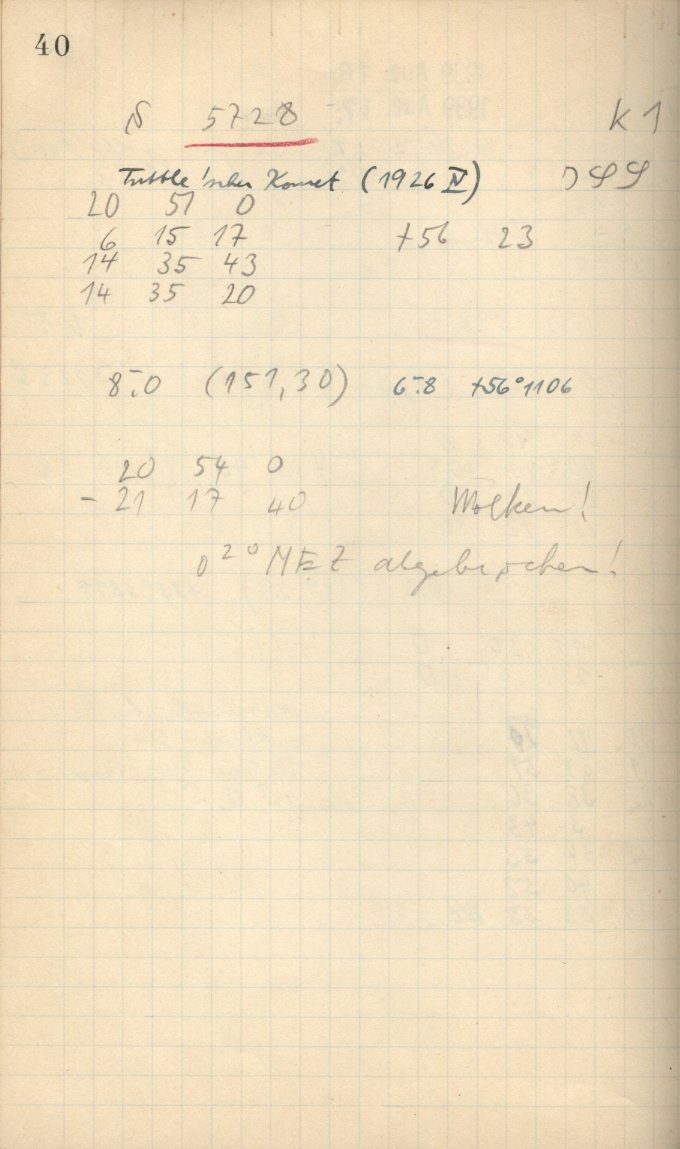 40
5728 K 1
Tuttle'scher Komet (1926 IV)
20 51 0
6 15 17 +56 23
14 35 43
14 35 20
8.0 (151,30) 6.8 +56° 1106
20 54 0
- 21 17 40 Wolken!
0 20 MEZ abgebrochen!